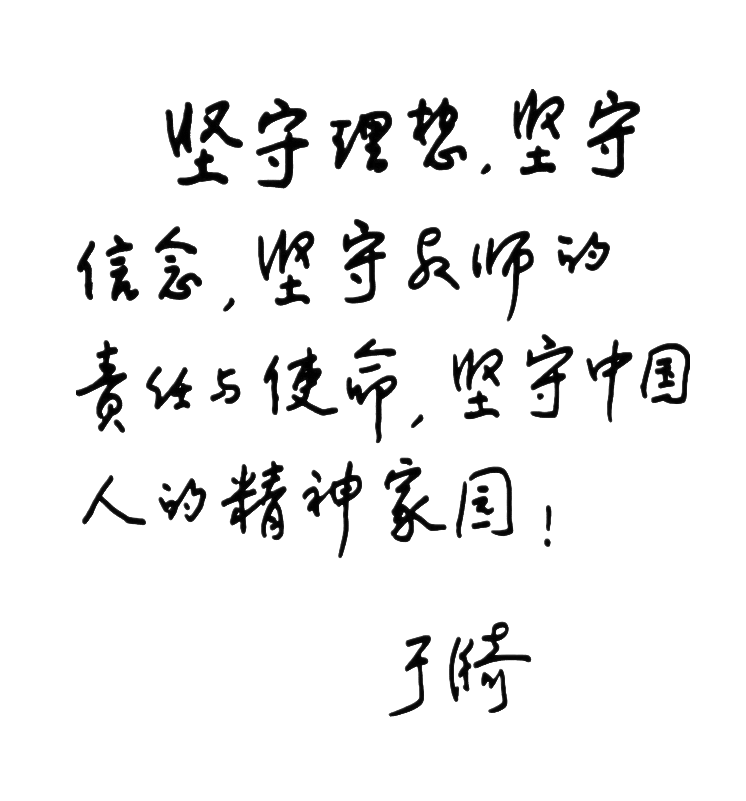 坚守理想,坚守
信念,坚守教师的
责任与使命,坚守中国
人的精神家园!
于漪